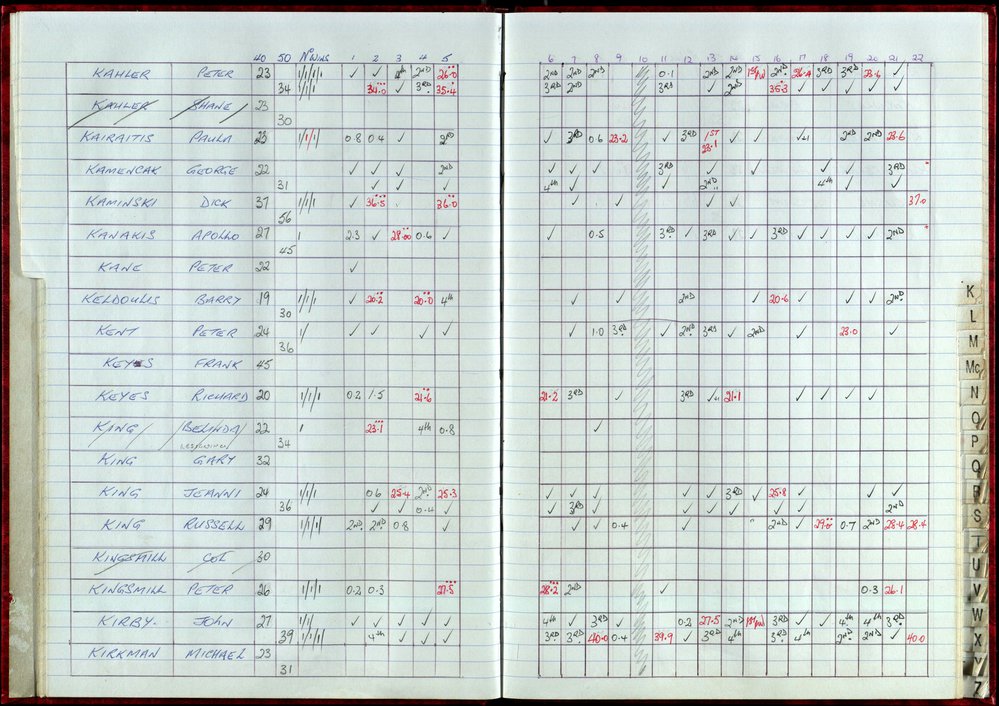 40 50 Nº WINS 1 2 3 4 5 6 7 8 9 10 11 12 13 14 15 16 17 18 19 20 21 22
KAHLER PETER 23 ✓ ✓ 4th 2ND 26.0 2ND 2ND 2ND 0.1 2ND 2ND 2ND 26.4 3RD 3RD 23.6 ✓
34 34.0 ✓ 3RD 35.4 3RD 2ND 3RD ✓ 2ND 35.3 ✓ ✓ ✓ ✓ ✓
KAHLER SHANE 23
30
KAIRAITIS PAULA 23 0.8 0.4 ✓ 2ND ✓ 3RD 0.6 23.2 ✓ 3RD 1ST 23.1 ✓ ✓ 2ND 2ND 23.6
KAMENCAK GEORGE 22 ✓ ✓ ✓ 2ND ✓ ✓ ✓ 3RD ✓ ✓ ✓ ✓ 3RD
31 ✓ ✓ ✓ 4th ✓ ✓ 2ND 4th ✓ ✓
KAMINSKI DICK 37 ✓ 36.5 36.0 ✓ ✓ ✓ ✓ 37.0
56
KANAKIS APOLLO 27 2.3 ✓ 28.00 0.6 ✓ ✓ 0.5 3RD ✓ 3RD ✓ ✓ 3RD ✓ ✓ ✓ ✓ 2ND
45
KANE PETER 22 ✓
KELDOULIS BARRY 19 ✓ 20.2 20.0 4th ✓ ✓ 2ND ✓ 20.6 ✓ ✓ ✓ 2ND
30
KENT PETER 24 ✓ ✓ ✓ ✓ ✓ 1.0 3RD ✓ 2ND 3RD ✓ 2ND ✓ 23.0 ✓
36
KEYES FRANK 45
KEYES RICHARD 20 0.2 1.5 21.6 21.2 3RD 3RD 21.1 ✓ ✓ ✓ ✓
KING BELINDA 22 23.1 4th 0.8 ✓
34
KING GARY 32
KING JEANNI 24 0.6 25.4 2ND 25.3 ✓ ✓ ✓ ✓ ✓ 3RD ✓ 25.8 ✓ ✓
36 ✓ ✓ 0.4 ✓ ✓ 3RD ✓ ✓ ✓ ✓ ✓ ✓ 2ND
KING RUSSELL 29 2ND 2ND 0.8 ✓ ✓ ✓ 0.4 ✓ 2ND ✓ 29.0 0.7 2ND 28.4 28.4
KINGSMILL COL 30
KINGSMILL PETER 26 0.2 0.3 27.5 28.2 2ND ✓ 0.3 26.1
KIRBY. JOHN 27 ✓ ✓ ✓ ✓ ✓ 4th ✓ 3RD ✓ ✓ 0.2 27.5 2ND 3RD ✓ ✓ 4th 4th 3RD
39 4th ✓ ✓ ✓ 3RD 3RD 40.0 0.4 39.9 ✓ 3RD 4th 3RD 4th 2ND 2ND ✓ 40.0
KIRKMAN MICHAEL 23
31
K
L
M
Mc
N
O
P
Q
R
S
T
U
V
W
X
Y
Z